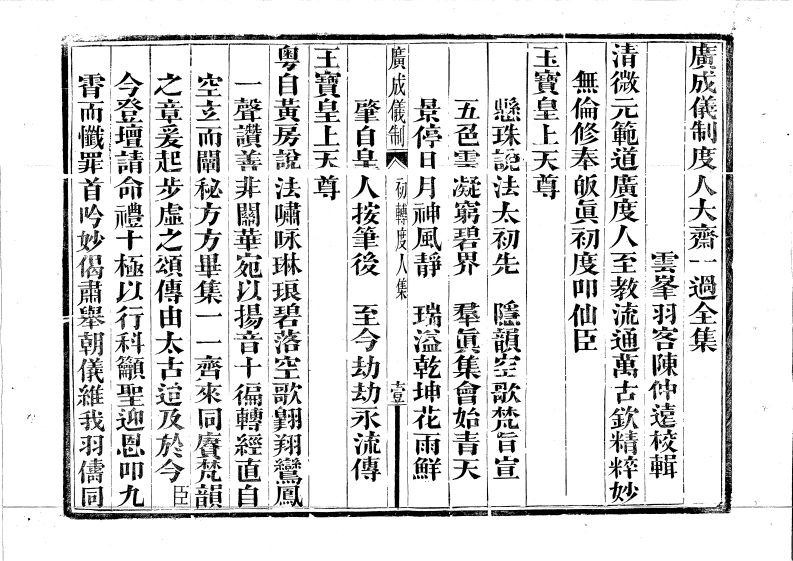 廣成儀制度人大齋一過全集
雲峯羽客陳仲遠校輯
清微元範道廣度人至教流通萬古欽精粹妙
無倫修奉皈眞初度叩仙臣
玉寶皇上天尊
懸珠說法太初先　隱韻空歌梵旨宣
五色雲凝窮碧界　羣眞集會始青天
景停日月神風靜　瑞溢乾坤花雨鮮
廣成儀制　初轉度人集　壹
肇自皇人按筆後　至今劫劫永流傳
王寶皇上天尊
粵自黃房說法嘯咏琳琅碧落空歌翺翔鸞鳳
一聲讚善非關華宛以揚音十徧轉經直自
空立而闡秘方方畢集一一齊來同賡梵韻
之章爰起步虛之頌傳由太古迨及於今臣
今登壇請命禮十極以行科籲聖迎恩叩九
霄而懺罪首吟妙偈肅舉朝儀維我羽儔同